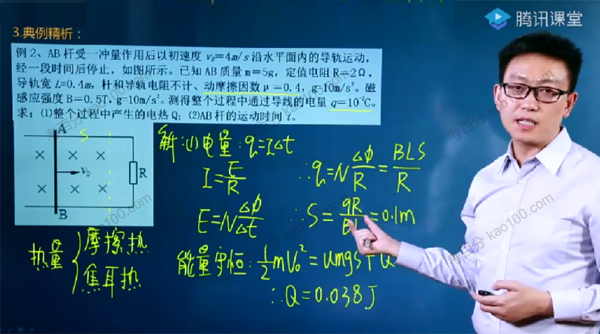 3.典例精析:
腾讯课堂
例 2、AB 杆受一冲量作用后以初速度 v₀=4m/s 沿水平面内的导轨运动,
经一段时间后停止, 如图所示。已知AB 质量 m=5g, 定值电阻R=2Ω,
导轨宽 L=0.4m, 杆和导轨电阻不计、动摩擦因数μ=0.4, g=10m/s². 磁
感应强度 B=0.5T, g=10m/s². 测得整个过程中通过导线的电量
求: (1)整个过程中产生的电热 Q; (2)AB 杆的运动时间 t。
A
S
v₀
R
B
解:(1)电量: q=IΔt
I=E/R
E=NΔΦ/Δt
∴q=NΔΦ/R=BLS/R
∴S=qR/BL=0.1m
热量{摩擦热
焦耳热
能量守恒:½mv₀²=μmgs+Q
∴Q=0.038J
kao100.com